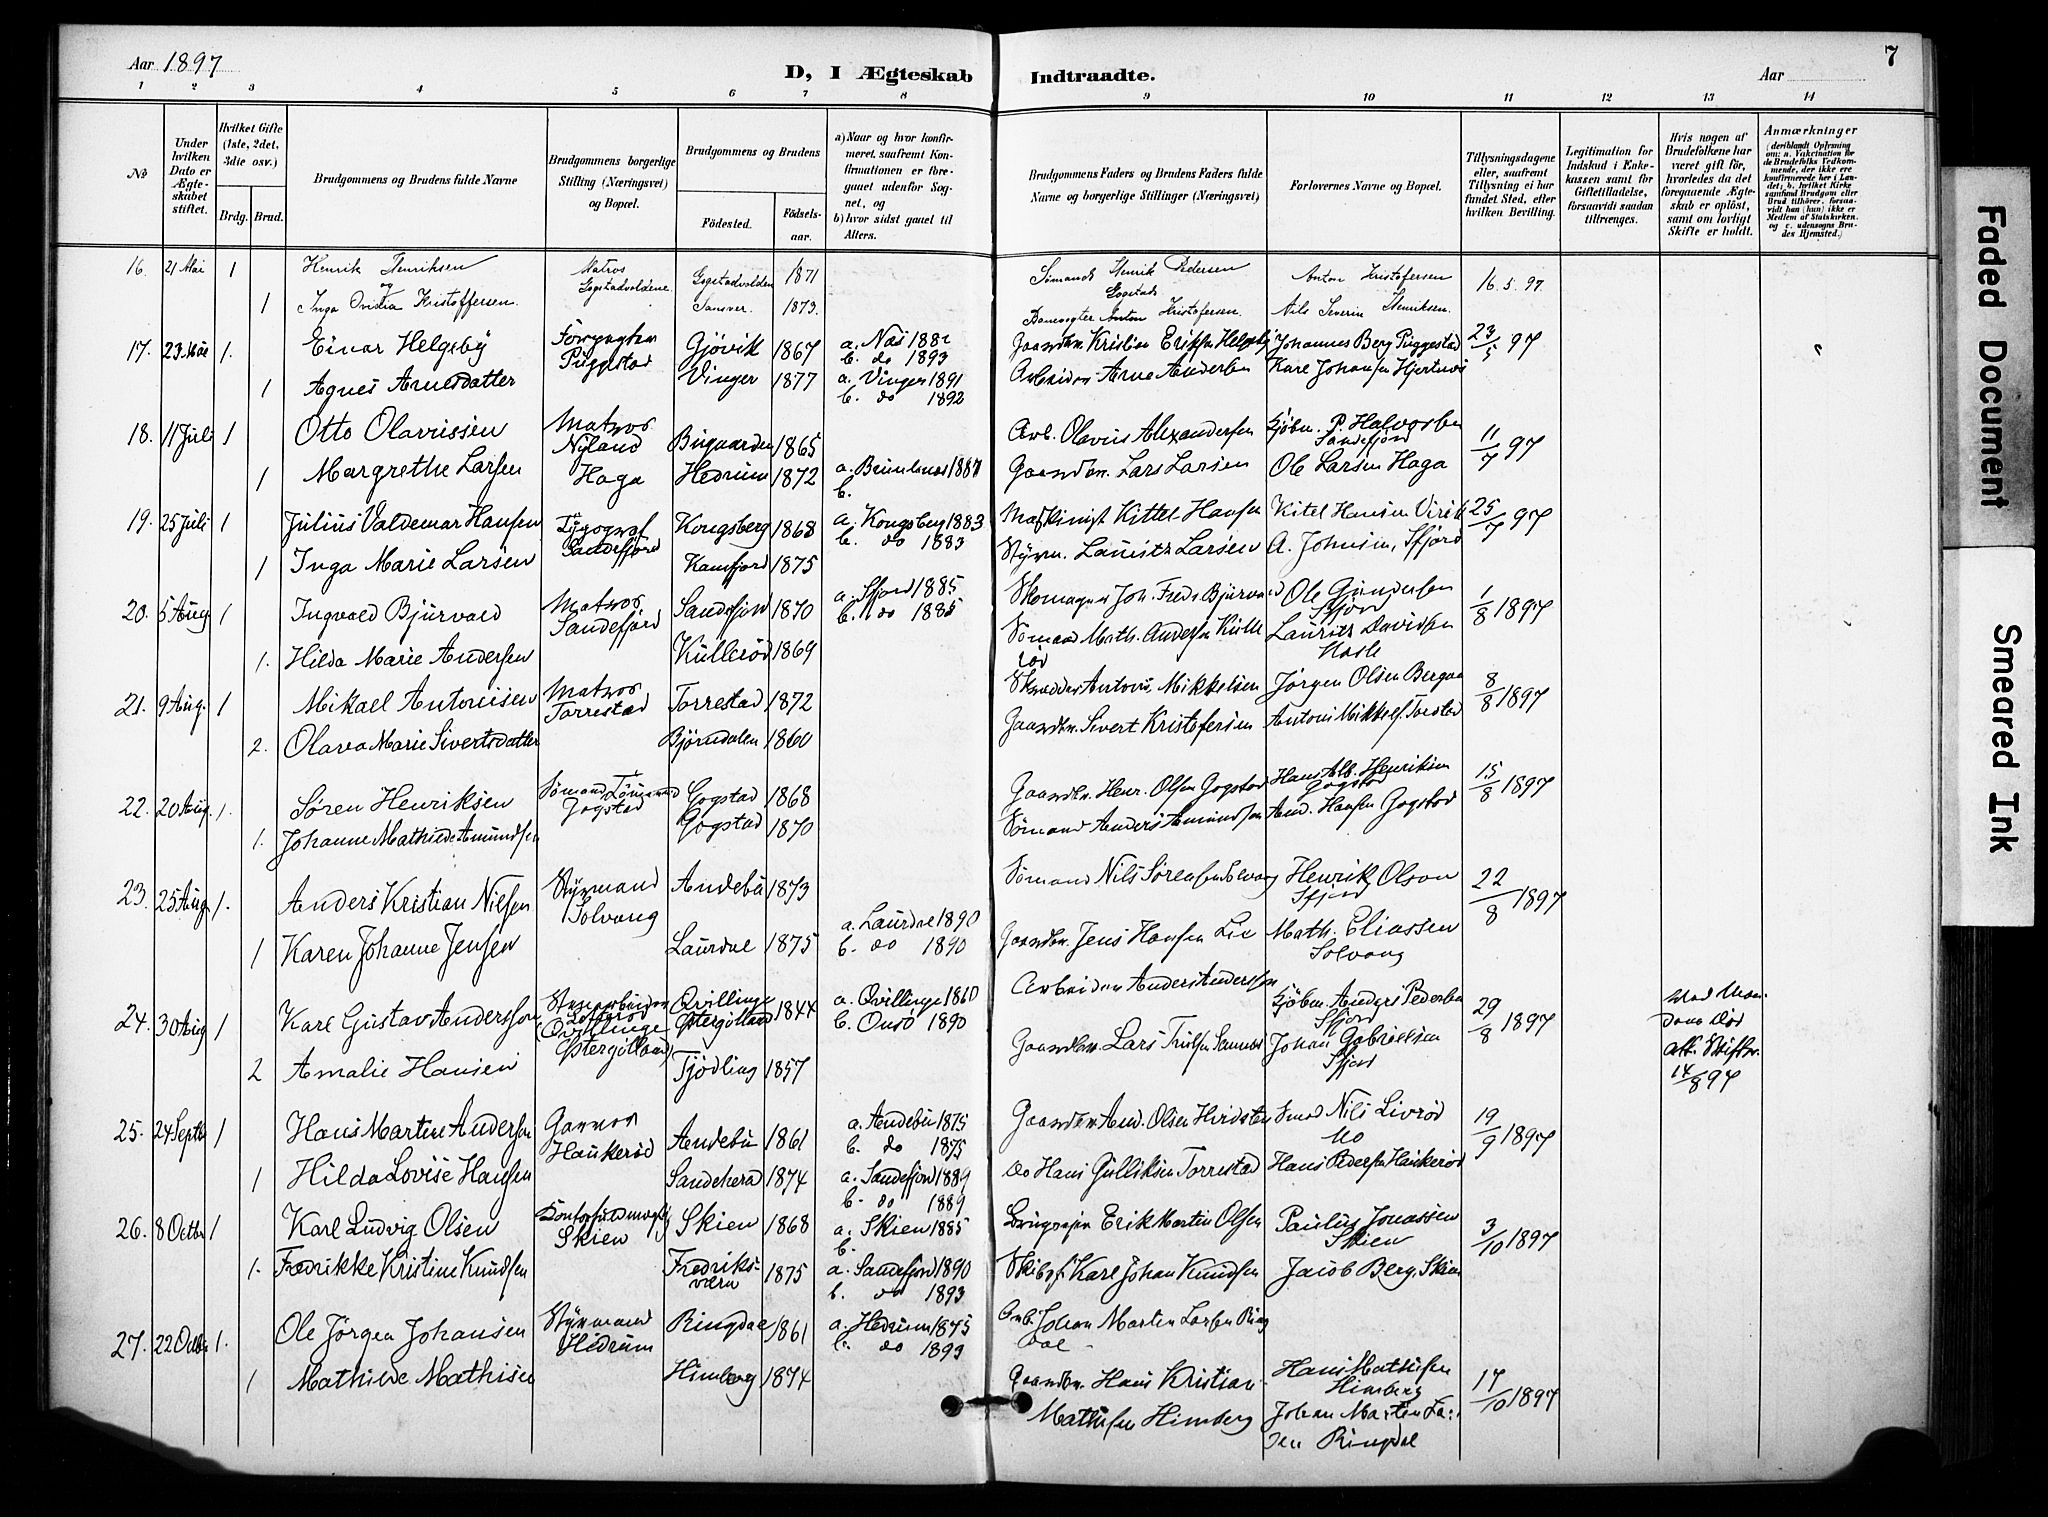 Aar 1897
D, I Ægteskab Indtraadte.
Aar
7
1 2 3 4 5 6 7 8 9 10 11 12 13 14
No
Under hvilken Dato er Ægteskabet stiftet.
Hvilket Gifte (1ste, 2det, 3die osv.)
Brdg. Brud.
Brudgommens og Brudens fulde Navne
Brudgommens borgerlige Stilling (Næringsvei) og Bopæl.
Brudgommens og Brudens
Födested. Födselsaar.
a) Naar og hvor konfirmeret, saafremt Konfirmationen er foregaaet udenfor Sognet, og
b) hvor sidst gaaet til Alters.
Brudgommens Faders og Brudens Faders fulde Navne og borgerlige Stillinger (Næringsvei)
Forlovernes Navne og Bopæl.
Tillysningsdagene eller, saafremt Tillysning ei har fundet Sted, efter hvilken Bevilling.
Legitimation for Indskud i Enkekassen samt for Giftetilladelse, forsaavidt saadan tiltrænges.
Hvis nogen af Brudefolkene har været gift før, hvorledes da det foregaaende Ægteskab er oplöst, samt om lovligt Skifte er holdt.
Anmærkninger
(deriblandt Oplysning om: a. Vakcination for de Brudefolks Vedkommende, der ikke ere konfirmerede her i Landet; b. hvilket Kirkesamfund Brudgom eller Brud tilhörer, forsaavidt han (hun) ikke er Medlem af Statskirken. og c. udensogns Brudes Hjemsted.)
16. 21 Mai 1 Henrik Henriksen Matros Gogstadvoldene Gogstadvolden 1871 Sømand Henrik Pedersen Gogstad Anton Kristofersen 16.5.97
og
1 Inga Ovidia Kristoffersen Sansver 1873. Banevogter Anton Kristofersen. Nils Severin Henriksen.
17. 23 Mai 1. Einar Helgeby Forpagter Puggestad Gjøvik 1867 a. Næs 1882 b. do 1893 Gaardbr. Kristian Eriksen Helgeby Johannes Berg Puggestad 23/5 97
1 Agnes Arnesdatter Vinger 1877 a. Vinger 1891 b. do 1892 Arbeider Arne Andersen Karl Johansen Hjertnæs
18. 11 Juli 1 Otto Olavussen Matros Nyland Bugaarden 1865 Arb. Olavus Alexandersen Kjøbm. P. Halvorsen Sandefjord 11/7 97
1 Margrethe Larsen Haga Hedrum 1872 a. Brunlanæs 1887 b. Gaardbr. Lars Larsen Ole Larsen Haga
19. 25 Juli 1 Julius Valdemar Hansen Typograf Sandefjord Kongsberg 1868 a. Kongsberg 1883 b. do 1883 Maskinist Kittel Hansen Kitel Hansen Virik 25/7 97
1 Inga Marie Larsen Kamfjord 1875 Styrm. Lauritz Larsen A. Johnsen, Sfjord
20. 5 Aug 1 Ingvald Bjurvald Matros Sandefjord Sandefjord 1870 a. Sfjord 1885 b. do 1885 Skomager Joh. Fredr. Bjurvald Ole Gundersen Sfjord 1/8 1897
1. Hilda Marie Andersen Kullerød 1869 Sømand Math. Andersen Kullerød Lauritz Davidsen Hasle
21. 9 Aug. 1 Mikael Antonisen Matros Torrestad Torrestad 1872 Skrædder Antoni Mikkelsen Jørgen Olsen Bergan 8/8 1897
2. Olava Marie Sivertsdatter Bjørndalen 1860 Gaardbr. Sivert Kristofersen Antoni Mikkels. Torstad
22. 20 Aug. 1. Søren Henriksen Sømand Gogstad Gogstad 1868 Gaardbr. Henr. Olsen Gogstad Hans Alb. Henriksen Gogstad 15/8 1897
1. Johanne Mathilde Amundsen Gogstad 1870 Sømand Anders Amundsen And. Hansen Gogstad
23. 25 Aug 1. Anders Kristian Nilsen Styrmand Solvang Andebu 1873 Sømand Nils Sørensen Solvang Henrik Olson Sfjord 22/8 1897
1 Karen Johanne Jensen Laurdal 1875 a. Laurdal 1890 b. do 1890 Gaardbr. Jens Hansen Lie Math. Eliassen Solvang
24. 30 Aug 1 Karl Gustav Andersson (Qvillinge Østergøtland) Qvillinge Østergøtland 1844 a. Qvillinge 1860 b. Onsö 1890 Arbeider Anders Andersson Kjøbm. Anders Pedersen Sfjord 29/8 1897
2 Amalie Hansen Tjødling 1857 Gaardbr. Lars Johan Gabrielsen Sfjord 14/8 97
25. 24 Septb 1 Hans Martin Andersen Garver Haukerød Andebu 1861 a. Andebu 1875 b. do 1875 Gaardbr. And. Olsen Hvidsten Smed Nils Livrød Mo 19/9 1897
1 Hilda Lovise Hansen Sandeherad 1874 a. Sandefjord 1889 b. do 1889 do Hans Gulliksen Torrestad Hans Pedersen Haukerød
26. 8 Octbr 1 Karl Ludvig Olsen Kontorfuldmægtig Skien Skien 1868 a. Skien 1885 b. Erik Martin Olsen Paulus Jonassen Skien 3/10 1897
1. Fredrikke Kristine Knudsen Fredriksværn 1875 a. Sandefjord 1890 b. do 1893 Skibsf. Karl Johan Knudsen Jacob Berg, Skien
27. 22 Octbr 1. Ole Jørgen Johansen Styrmand Hedrum Ringdal 1861 a. Hedrum 1875 b. do 1893 Arb. Johan Martin Larsen Ringdal
1 Mathilde Mathisen Himberg 1874 Gaardbr. Hans Kristian Mathisen Himberg Hans Mathisen Himberg 17/10 1897
Johan Martin Larsen Ringdal
Faded Document
Smeared Ink